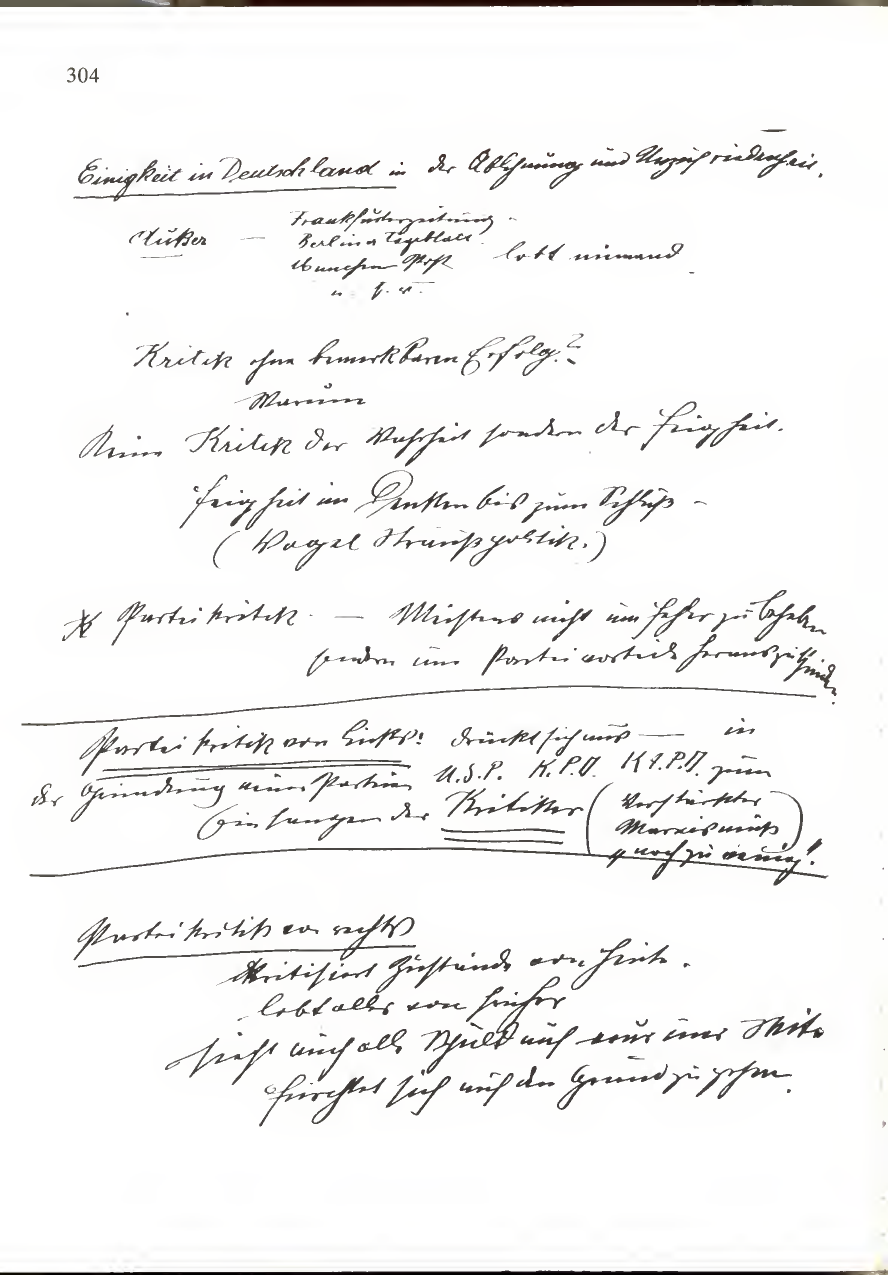 304
Einigkeit in Deutschland in der Ablehnung und Unzufriedenheit.
Außer — Frankfurterzeitung
Berliner Tageblatt
Münchner Post lobt niemand
u. s. w.
Kritik ohne bemerkbaren Erfolg?
Warum
Keine Kritik der Wahrheit sondern der Feigheit.
Feigheit im Denken bis zum Schluß –
(Vogel Straußpolitik.)
Parteikritik — Meistens nicht um Fehler zu beheben
sondern um Parteivorteile herauszuschinden.
Parteikritik von Links! drückt sich aus — in
der Gründung neuer Parteien U.S.P. K.P.D. K.A.P.D. zum
Einfangen der Kritiker (Verstärkter
Marxismus
noch zu wenig!)
Parteikritik von rechts
Kritisiert Zustände von heute.
lobt alles von früher
sieht auch alle Schuld auf nur einer Seite
fürchtet sich auf den Grund zu gehen.